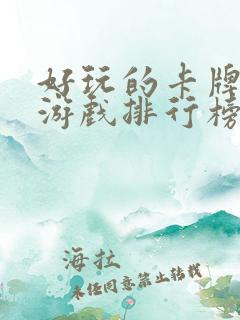 好玩的卡牌
游戏排行榜
海拉
未经同意禁止转载